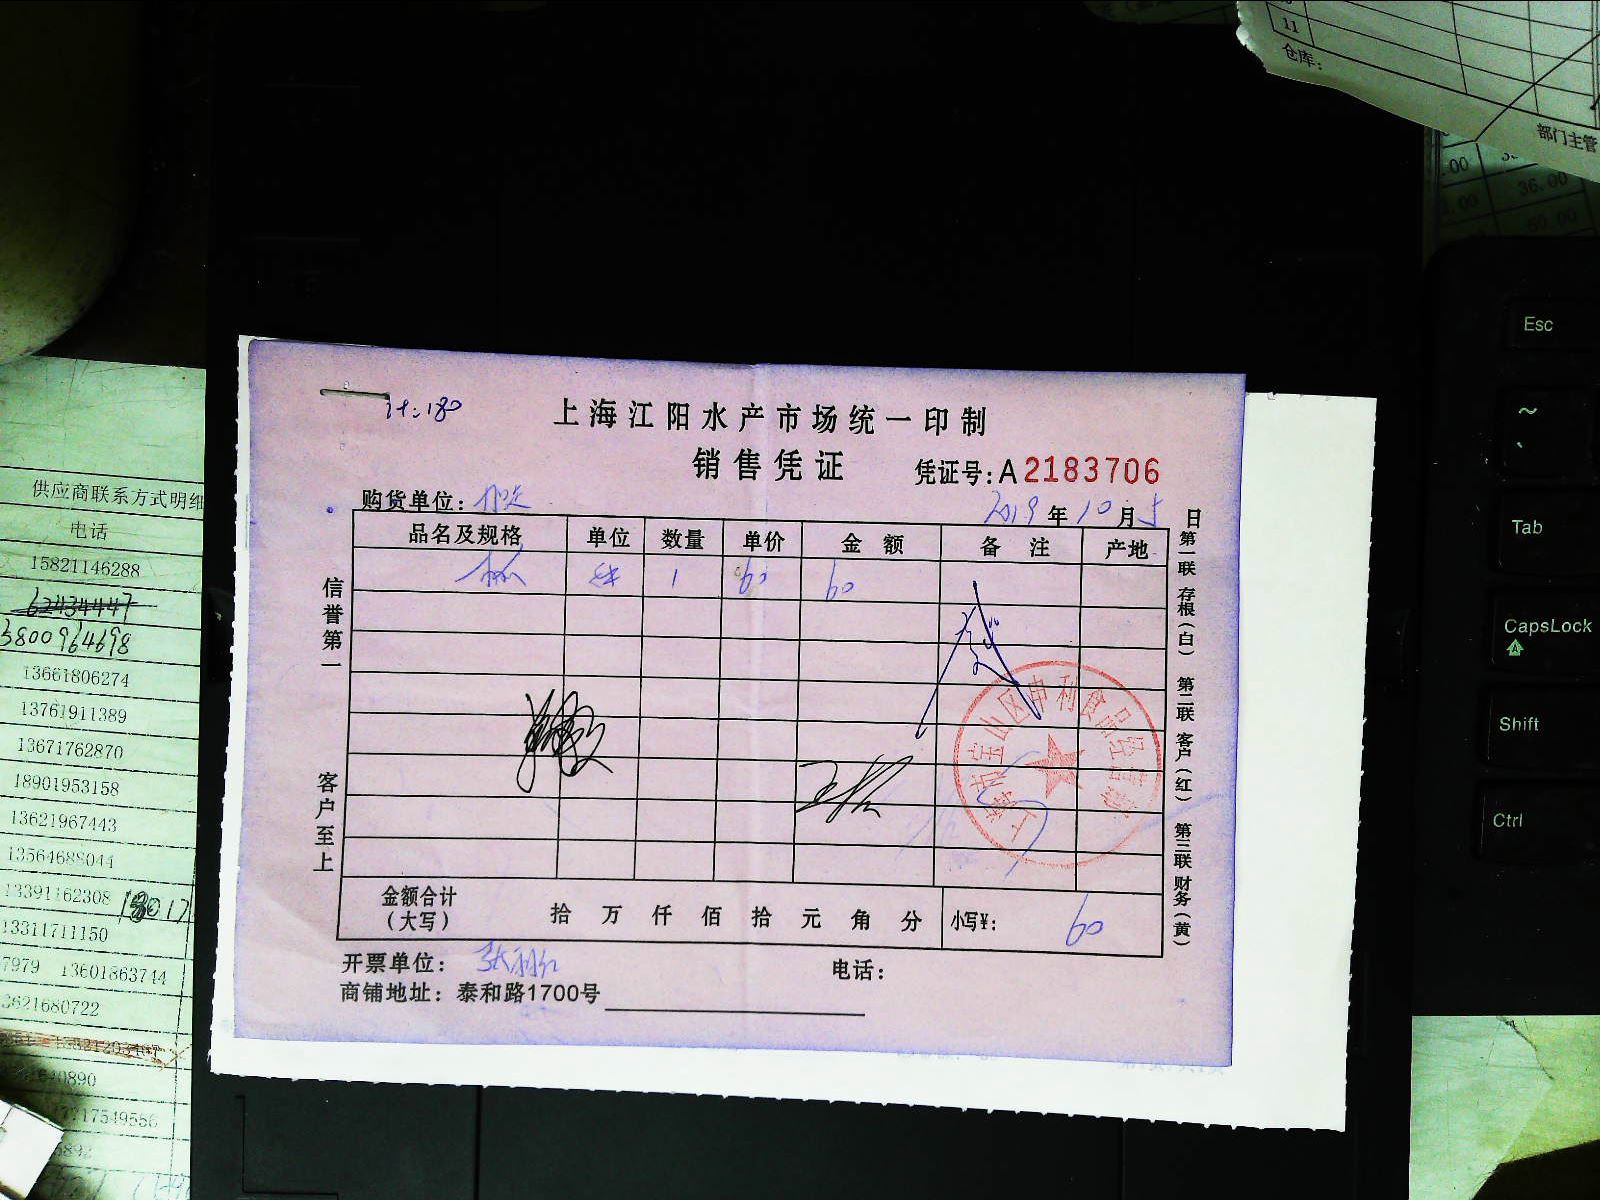 11
仓库：
部门主管
.00
36.00
.00
60.00
Esc
~
Tab
CapsLock
Shift
Ctrl
供应商联系方式明细
电话
15821146288
62434447
13661806274
13761911389
13671762870
18901953158
13621967443
13564688044
13391162308
13311711150
7979 13601863744
3621680722
计:180
上海江阳水产市场统一印制
销售凭证
凭证号:A2183706
购货单位:
2019年10月5日
品名及规格 单位 数量 单价 金额 备注 产地
1 60 60
信誉第一
客户至上
第一联 存根(白) 第二联 客户(红) 第三联 财务(黄)
上海市宝山区申利食品经营部
金额合计
(大写)
拾 万 仟 佰 拾 元 角 分 小写¥: 60
开票单位:
电话:
商铺地址: 泰和路1700号